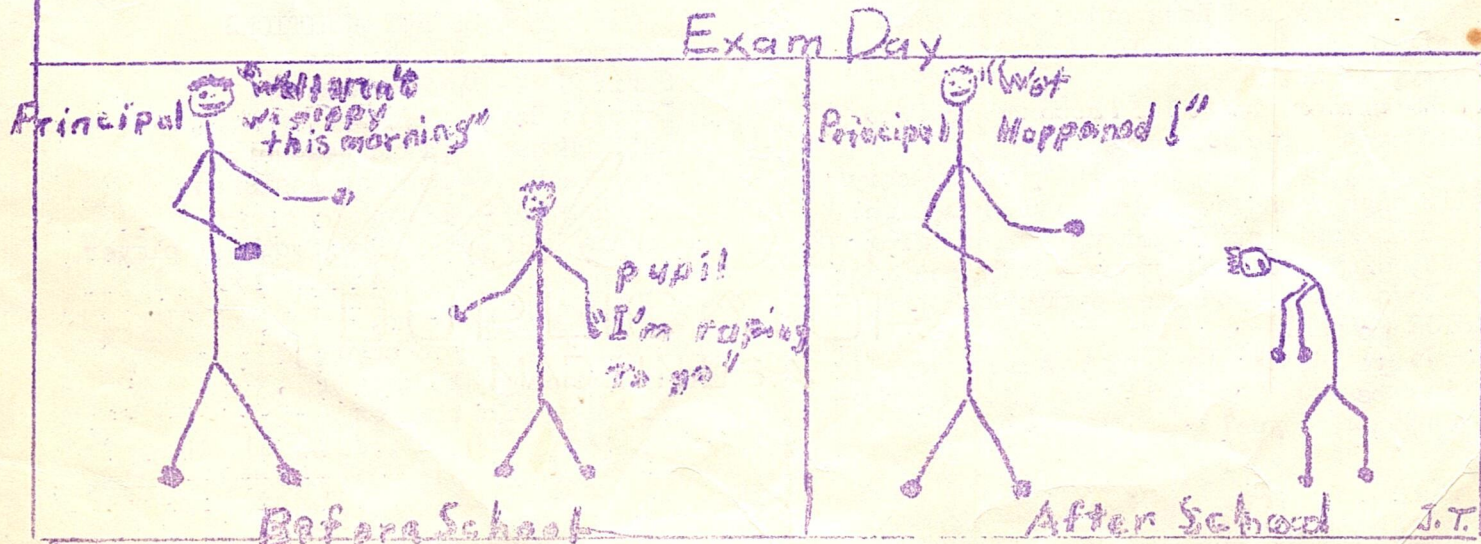 Exam Day
Principal
"Well aren't
we peppy
this morning"
pupil
"I'm raring
To go"
Before School
Principal
"Wat
Happened!"
After School
J.T.